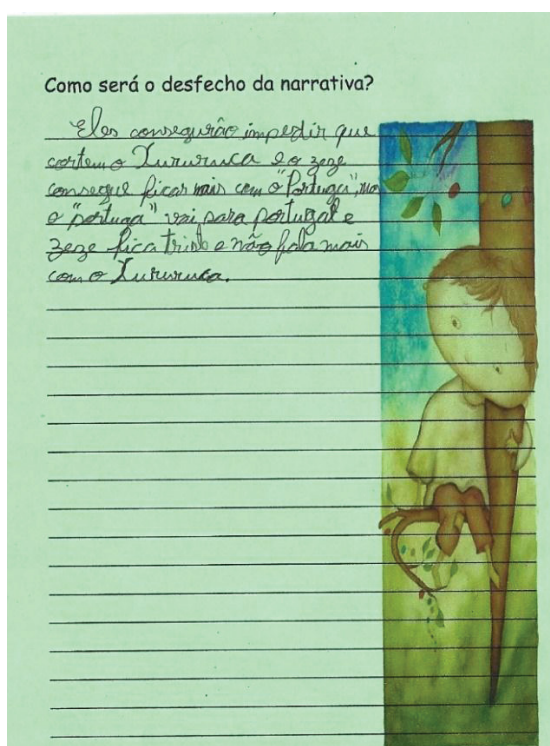 Como será o desfecho da narrativa?
Eles conseguirão impedir que
cortem o Xururuca e o zeze
consegue ficar mais com o "Portuga", mas
o "portuga" vai para portugal e
zeze fica triste e não fala mais
com o Xururuca.